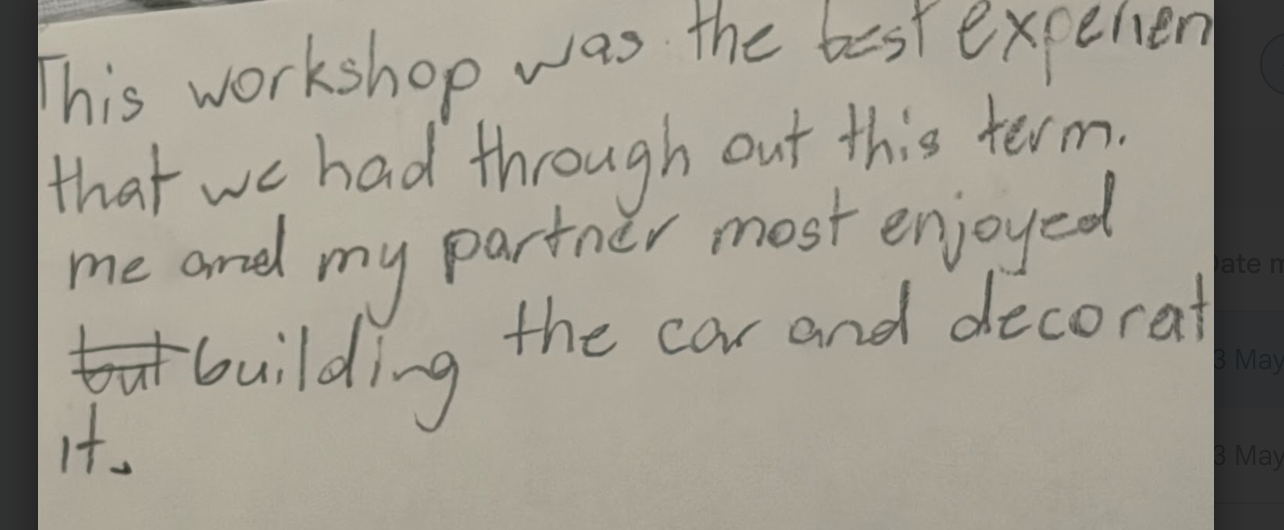 This workshop was the best experien
that we had through out this term.
me and my partner most enjoyed
but building the car and decorat
it.
ate m
3 May
3 May